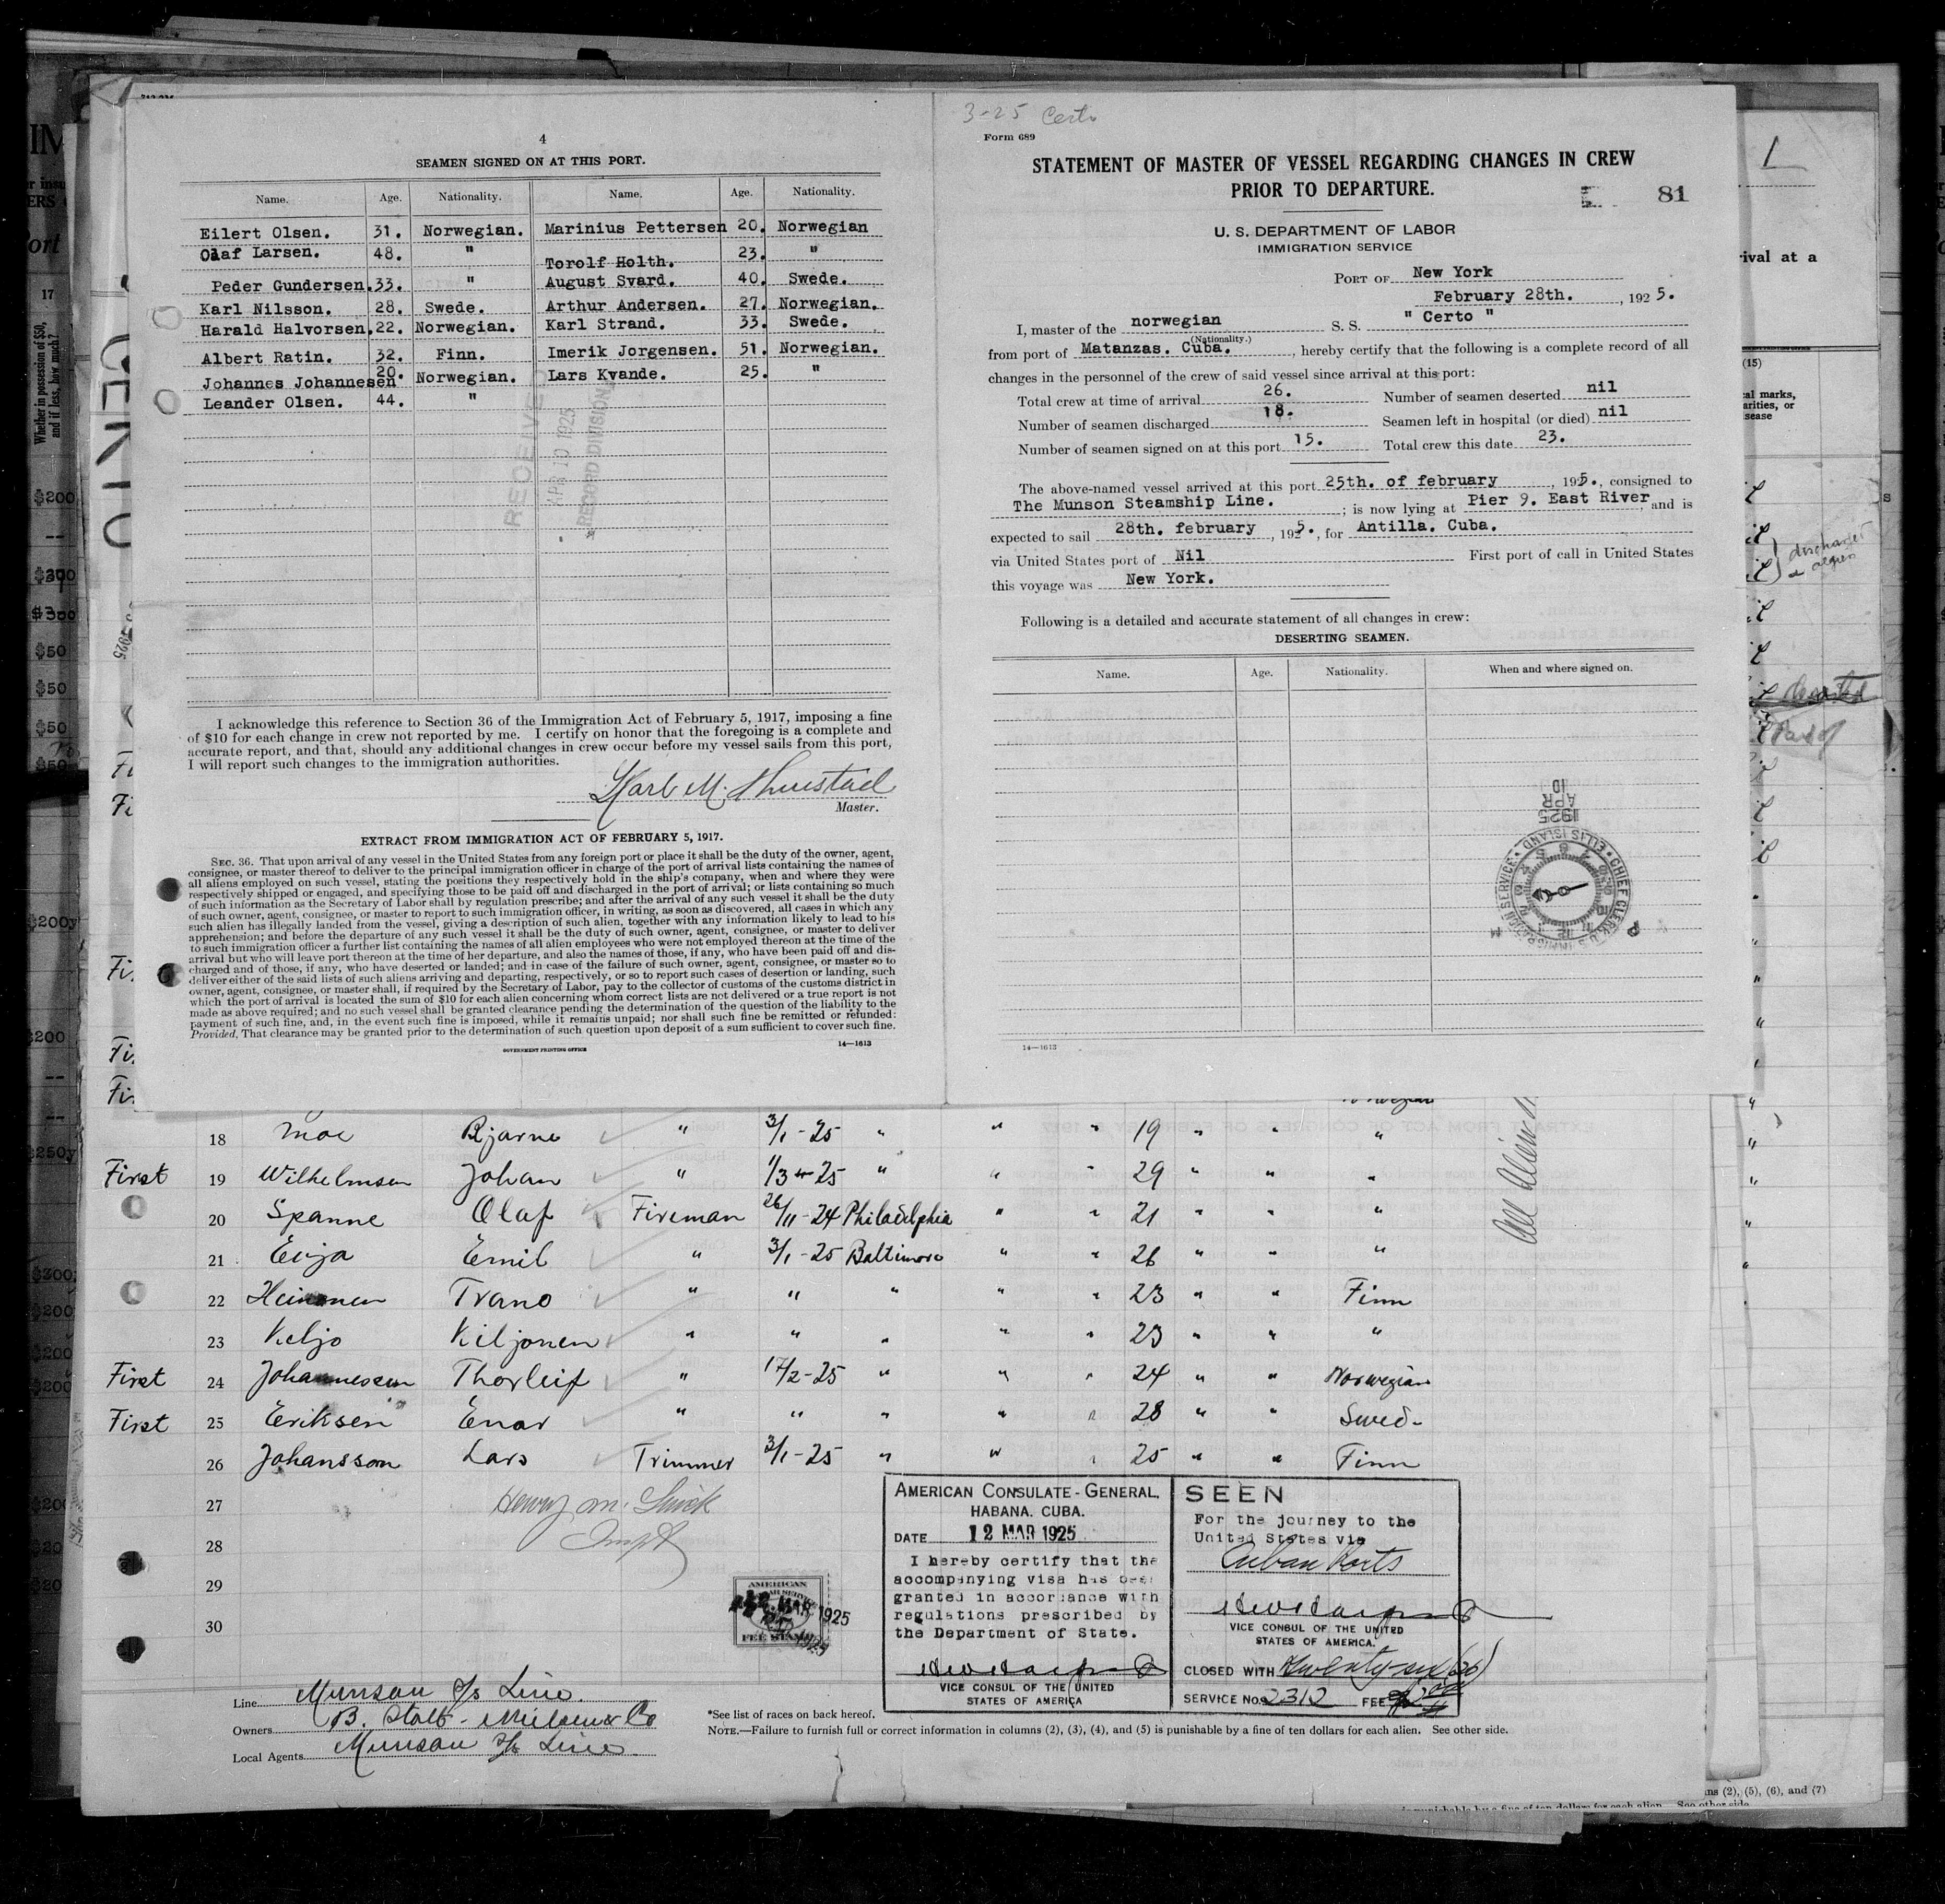 4
SEAMEN SIGNED ON AT THIS PORT.
Name. Age. Nationality. Name. Age. Nationality.
Eilert Olsen. 31. Norwegian. Marinius Pettersen 20. Norwegian
Olaf Larsen. 48. " Torolf Holth. 23. "
Peder Gundersen. 33. " August Svard. 40. Swede.
Karl Nilsson. 28. Swede. Arthur Andersen. 27. Norwegian.
Harald Halvorsen. 22. Norwegian. Karl Strand. 33. Swede.
Albert Ratin. 32. Finn. Imerik Jorgensen. 51. Norwegian.
Johannes Johannesen 20. Norwegian. Lars Kvande. 25. "
Leander Olsen. 44. "
RECEIVED
APR 10 1925
RECORD DIVISION
I acknowledge this reference to Section 36 of the Immigration Act of February 5, 1917, imposing a fine
of $10 for each change in crew not reported by me. I certify on honor that the foregoing is a complete and
accurate report, and that, should any additional changes in crew occur before my vessel sails from this port,
I will report such changes to the immigration authorities.
Karl M.
Master.
EXTRACT FROM IMMIGRATION ACT OF FEBRUARY 5, 1917.
SEC. 36. That upon arrival of any vessel in the United States from any foreign port or place it shall be the duty of the owner, agent,
consignee, or master thereof to deliver to the principal immigration officer in charge of the port of arrival lists containing the names of
all aliens employed on such vessel, stating the positions they respectively hold in the ship's company, when and where they were
respectively shipped or engaged, and specifying those to be paid off and discharged in the port of arrival; or lists containing so much
of such information as the Secretary of Labor shall by regulation prescribe; and after the arrival of any such vessel it shall be the duty
of such owner, agent, consignee, or master to report to such immigration officer, in writing, as soon as discovered, all cases in which any
such alien has illegally landed from the vessel, giving a description of such alien, together with any information likely to lead to his
apprehension; and before the departure of any such vessel it shall be the duty of such owner, agent, consignee, or master to deliver
to such immigration officer a further list containing the names of all alien employees who were not employed thereon at the time of the
arrival but who will leave port thereon at the time of her departure, and also the names of those, if any, who have been paid off and dis-
charged and of those, if any, who have deserted or landed; and in case of the failure of such owner, agent, consignee, or master so to
deliver either of the said lists of such aliens arriving and departing, respectively, or so to report such cases of desertion or landing, such
owner, agent, consignee, or master shall, if required by the Secretary of Labor, pay to the collector of customs of the customs district in
which the port of arrival is located the sum of $10 for each alien concerning whom correct lists are not delivered or a true report is not
made as above required; and no such vessel shall be granted clearance pending the determination of the question of the liability to the
payment of such fine, and, in the event such fine is imposed, while it remains unpaid; nor shall such fine be remitted or refunded:
Provided, That clearance may be granted prior to the determination of such question upon deposit of a sum sufficient to cover such fine.
GOVERNMENT PRINTING OFFICE 14—1613
3-25 Certo
Form 689
STATEMENT OF MASTER OF VESSEL REGARDING CHANGES IN CREW
PRIOR TO DEPARTURE.
81
U. S. DEPARTMENT OF LABOR
IMMIGRATION SERVICE
PORT OF New York
February 28th. , 1925.
I, master of the norwegian S. S. " Certo "
(Nationality.)
from port of Matanzas. Cuba. , hereby certify that the following is a complete record of all
changes in the personnel of the crew of said vessel since arrival at this port:
Total crew at time of arrival 26. Number of seamen deserted nil
Number of seamen discharged 18. Seamen left in hospital (or died) nil
Number of seamen signed on at this port 15. Total crew this date 23.
The above-named vessel arrived at this port 25th. of february , 1925., consigned to
The Munson Steamship Line. ; is now lying at Pier 9. East River, and is
expected to sail 28th. february , 1925., for Antilla. Cuba.
via United States port of Nil First port of call in United States
this voyage was New York.
Following is a detailed and accurate statement of all changes in crew:
DESERTING SEAMEN.
Name. Age. Nationality. When and where signed on.
1925 APR 10
CHIEF CLERK U. S. IMMIGRATION SERVICE ELLIS ISLAND
14—1613
18 Moe Bjarne " 3/1-25 " " " 19 " " "
First 19 Wilhelmsen Johan " " " " 29 " " "
20 Spanne Olaf Fireman 26/11-24 Philadelphia " " 21 " " "
21 Emil " 3/1-25 Baltimore " " 26 " " "
22 Heinonen " " " " " 23 " " Finn
23 Keljo Kiljonen " " " " " 23 " " "
First 24 Johannessen Thorleif " 17/2-25 " " " 24 " " Norwegian
First 25 Eriksen Enar " " " " " 28 " " Swed-
26 Johansson Lars Trimmer 3/1-25 " " " 25 " " Finn
27 Henry M.
28
29
30
AMERICAN
FEE STAMP
AMERICAN CONSULATE-GENERAL,
HABANA. CUBA.
DATE 12 MAR 1925
I hereby certify that the
accompanying visa has been
granted in accordance with
regulations prescribed by
the Department of State.
VICE CONSUL OF THE UNITED
STATES OF AMERICA
SEEN
For the journey to the
United States via
Cuban Ports
VICE CONSUL OF THE UNITED
STATES OF AMERICA.
CLOSED WITH twenty-six (26)
SERVICE No. 2312 FEE
Line Munson S/S Line.
Owners B. Stolt-Nielsen & Co
Local Agents Munson S/S Line
*See list of races on back hereof.
NOTE.—Failure to furnish full or correct information in columns (2), (3), (4), and (5) is punishable by a fine of ten dollars for each alien. See other side.